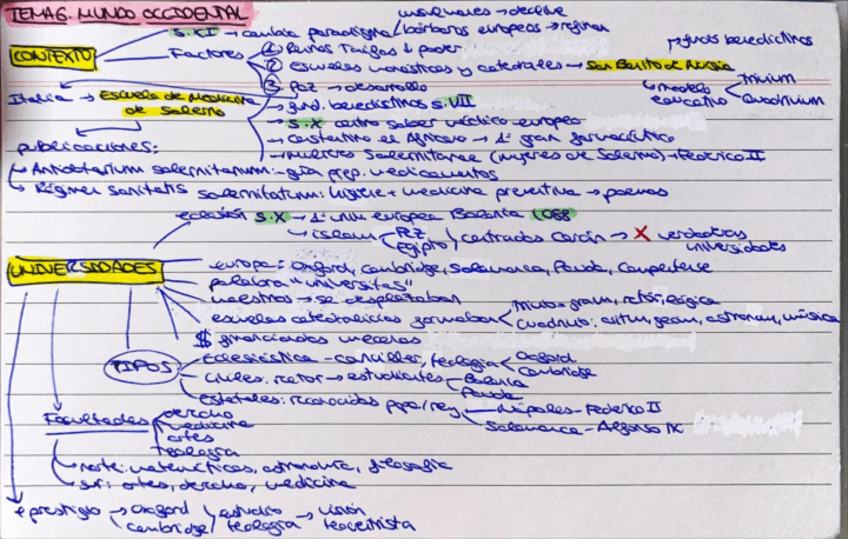 TEMA 6. MUNDO OCCIDENTAL
musulmanes → declive
CONTEXTO
S. XI → cambia paradigma bárbaros europeos → refinan
Factores
① Reinos Taifas ↓ poder
② escuelas monásticas y catedrales → San Benito de Nursia
③ Paz → desarrollo
→ fundó benedictinos
↳ modelo educativo
Trivium
Quadrivium
Italia → Escuela de Medicina de Salerno
→ fund. benedictinos S. VII
→ S. X centro saber médico europeo
→ Constantino el Africano → 1º gran farmacéutico
→ Mulieres Salernitanae (mujeres de Salerno) → Federico II
publicaciones:
↳ Antidotarium salernitanum: guía prep. medicamentos
↳ Régimen Sanitatis salernitatum: higiene + medicina preventiva → poemas
eclosión S. X → 1ª univ europea Bolonia 1088
↳ islam
Fez
Egipto
centradas Corán → X verdaderas universidades
UNIVERSIDADES
europa: Oxford, Cambridge, Salamanca, Padua, Complutense
palabra "universitas"
maestros → se desplazaban
escuelas catedralicias formaban
Trivio = gram, retór, lógica
Cuadrivio: aritm, geom, astronom, música
$ financiadas mecenas
TIPOS
Eclesiástica - canciller, teología
Oxford
Cambridge
Civiles: rector → estudiantes
Bolonia
Padua
Estatales: reconocidas papa/rey
Nápoles - Federico II
Salamanca - Alfonso IX
Facultades
derecho
medicina
artes
teología
↳ norte: matemáticas, astronomía, filosofía
↳ sur: artes, derecho, medicina
prestigio → Oxford
Cambridge
estudio teología → visión teocentrista